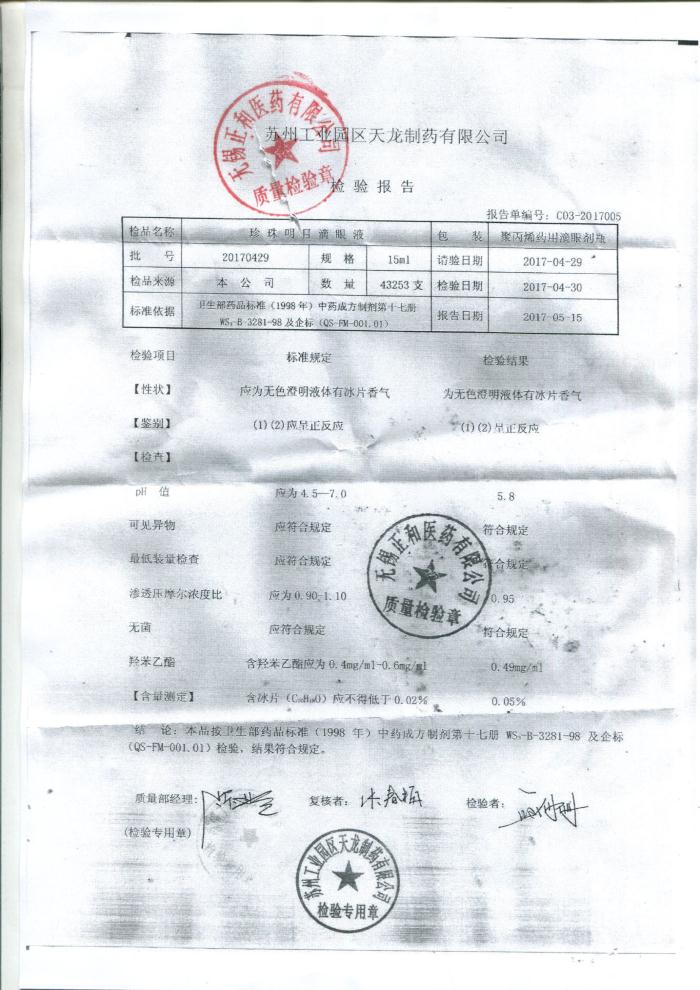 苏州工业园区天龙制药有限公司
无锡正和医药有限公司
质量检验章
检验报告
报告单编号：C03-2017005
检品名称 珍珠明目滴眼液 包 装 聚丙烯药用滴眼剂瓶
批 号 20170429 规 格 15ml 请验日期 2017-04-29
检品来源 本 公 司 数 量 43253 支 检验日期 2017-04-30
标准依据 卫生部药品标准（1998 年）中药成方制剂第十七册
WS₃-B-3281-98 及企标（QS-FM-001.01） 报告日期 2017-05-15
检验项目 标准规定 检验结果
【性状】 应为无色澄明液体有冰片香气 为无色澄明液体有冰片香气
【鉴别】 (1)(2)应呈正反应 (1)(2)呈正反应
【检查】
pH 值 应为 4.5—7.0 5.8
可见异物 应符合规定 符合规定
最低装量检查 应符合规定 符合规定
渗透压摩尔浓度比 应为 0.90-1.10 0.95
无菌 应符合规定 符合规定
羟苯乙酯 含羟苯乙酯应为 0.4mg/ml-0.6mg/ml 0.49mg/ml
【含量测定】 含冰片（C₁₀H₁₈O）应不得低于 0.02% 0.05%
无锡正和医药有限公司
质量检验章
结 论：本品按卫生部药品标准（1998 年）中药成方制剂第十七册 WS₃-B-3281-98 及企标
（QS-FM-001.01）检验，结果符合规定。
质量部经理： 复核者： 检验者：
(检验专用章)
苏州工业园区天龙制药有限公司
检验专用章